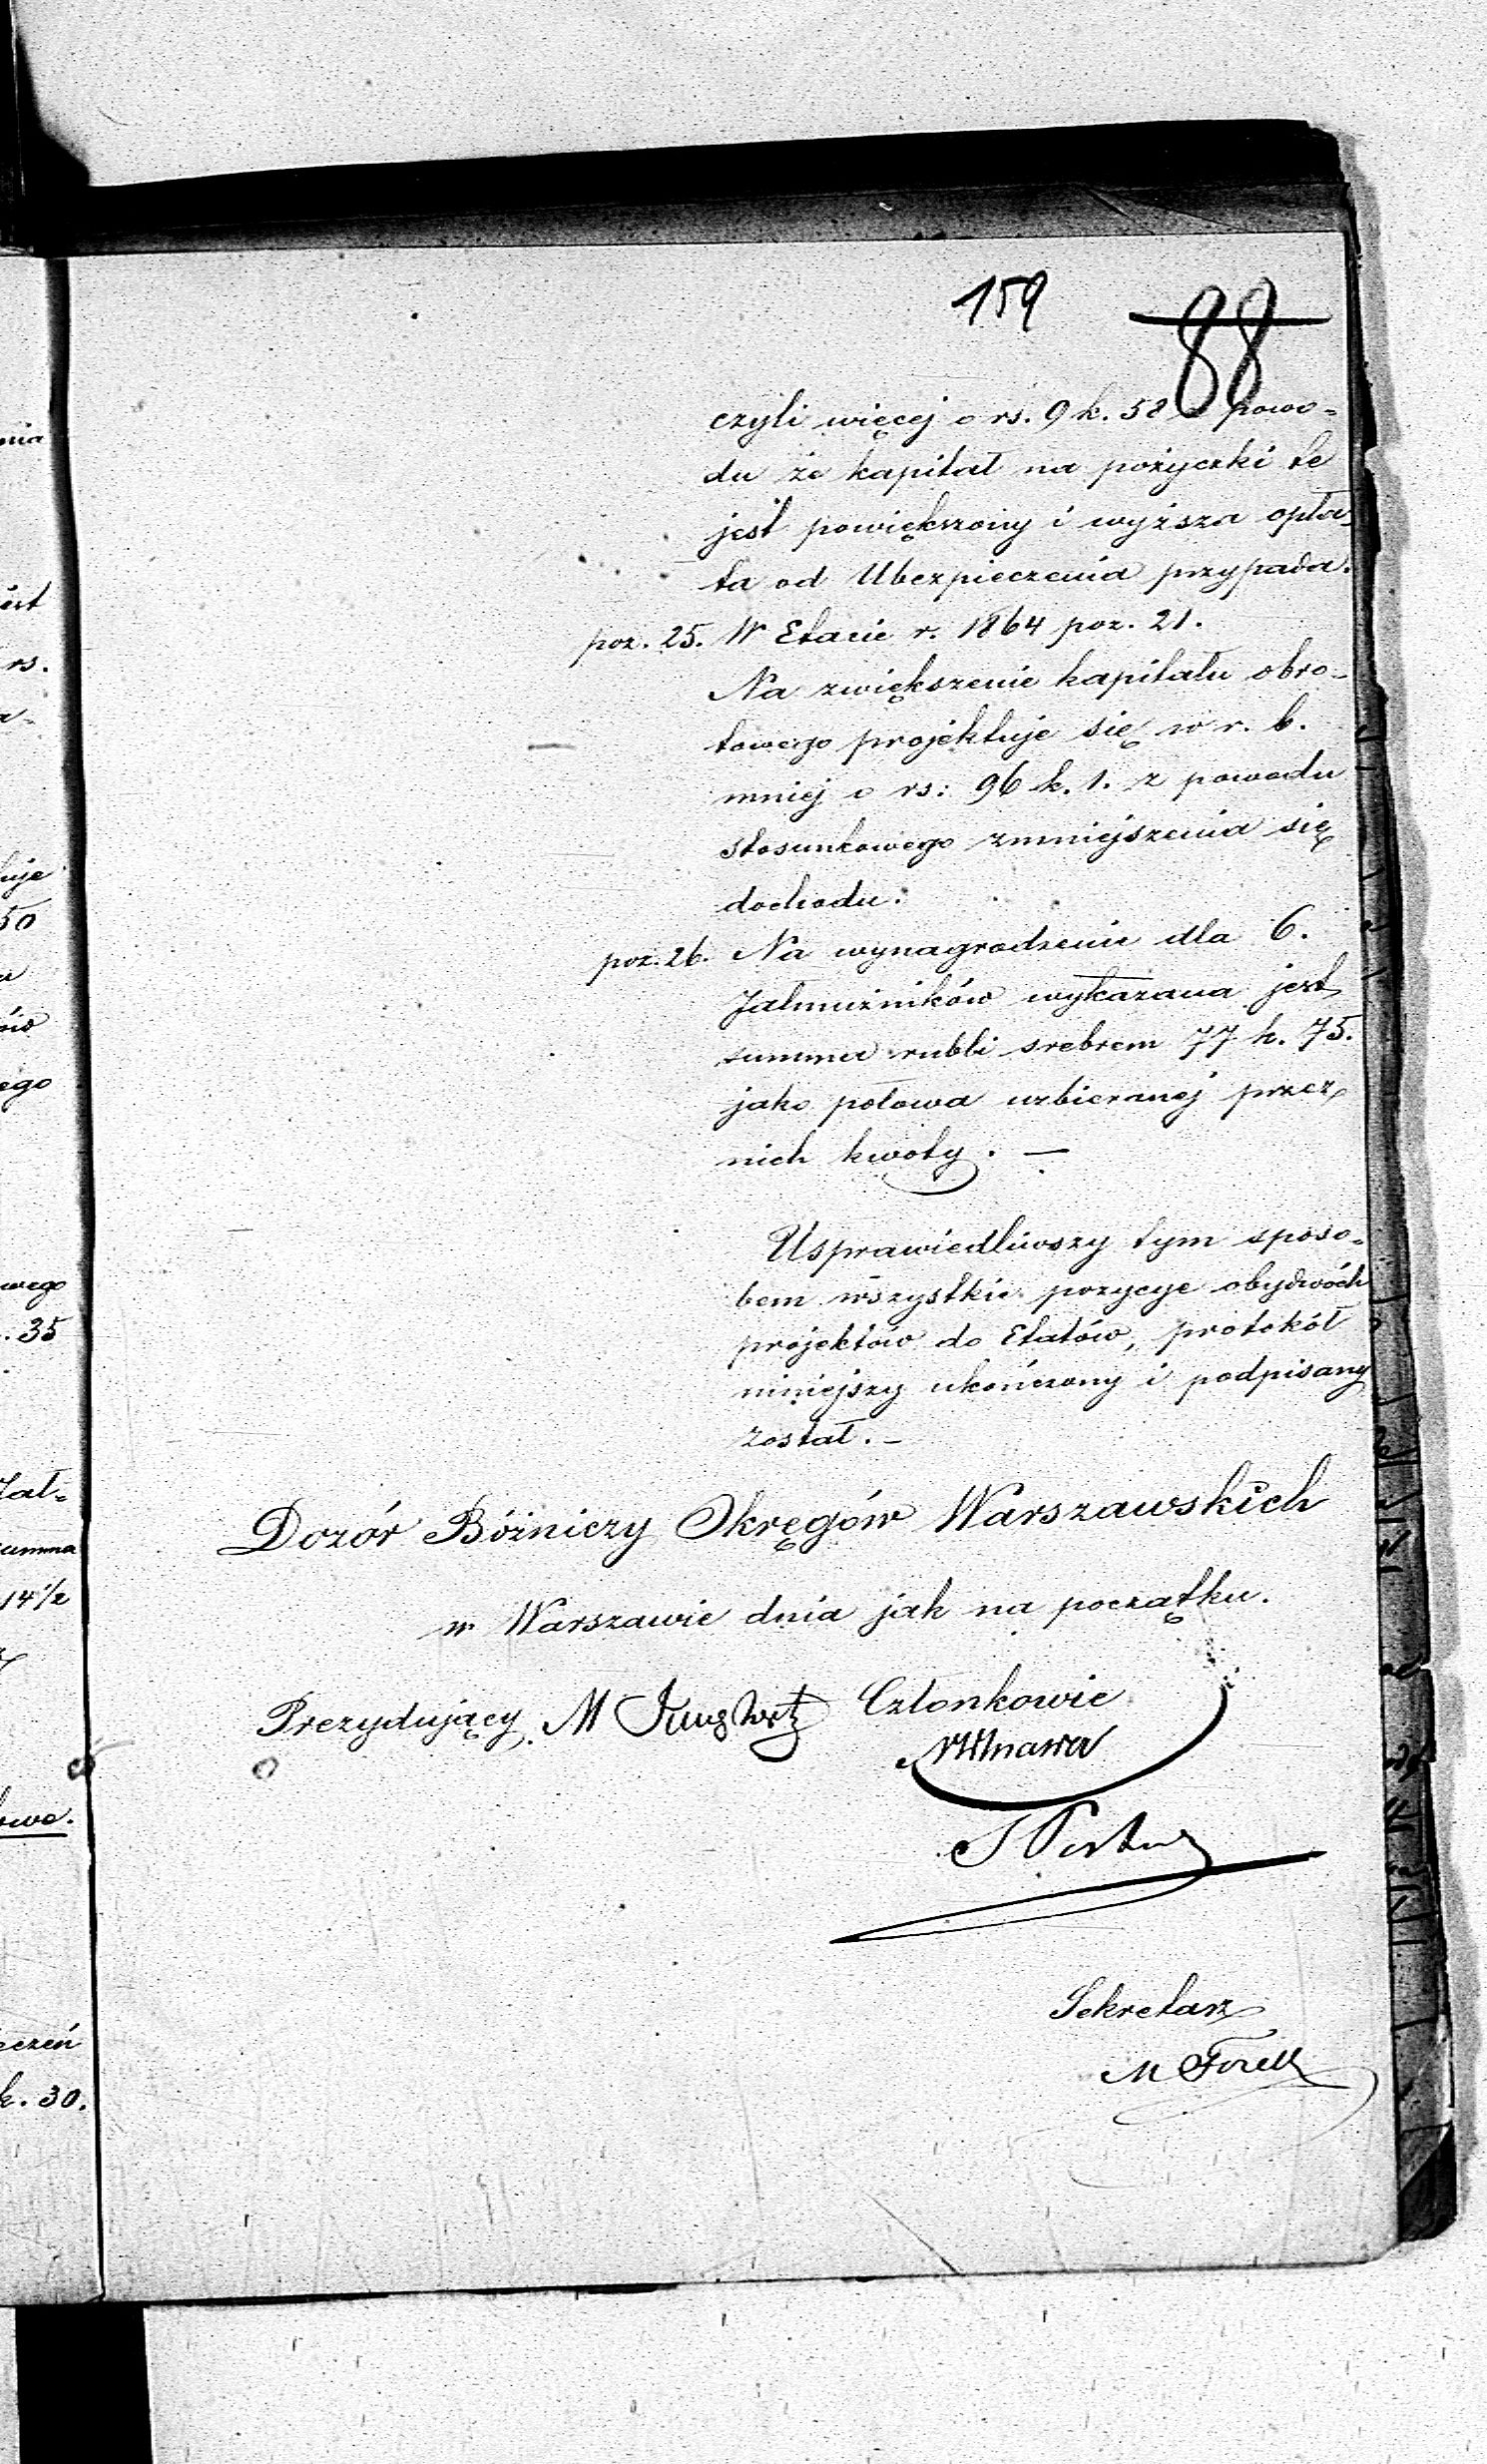 159 88
czyli więcej o rs. 9 k. 58 z powo=
du że kapitał na pożyczki te
jest powiększony i wyższa opła=
ta od Ubezpieczenia przypada.
poz. 25. W Etacie r. 1864 poz. 21.
Na zwiększenie kapitału obro=
towego projektuje się w r. b.
mniej o rs: 96 k. 1. z powodu
stosunkowego zmniejszenia się
dochodu.
poz. 26. Na wynagrodzenie dla 6.
Jałmużników wykazana jest
summa rubli srebrem 77 k. 75.
jako połowa uzbieranej przez
nich kwoty. —
Usprawiedliwszy tym sposo=
bem wszystkie pozycye obydwóch
projektów do Etatów, protokół
niniejszy ukończony i podpisany
został. —
Dozór Bóżniczy Okręgów Warszawskich
w Warszawie dnia jak na początku.
Prezydujący M Członkowie
Sekretarz
nia
est
rs.
uje
50
ego
wego
. 35
Jał=
summa
14 1/2
owe.
eczeń
k. 30.